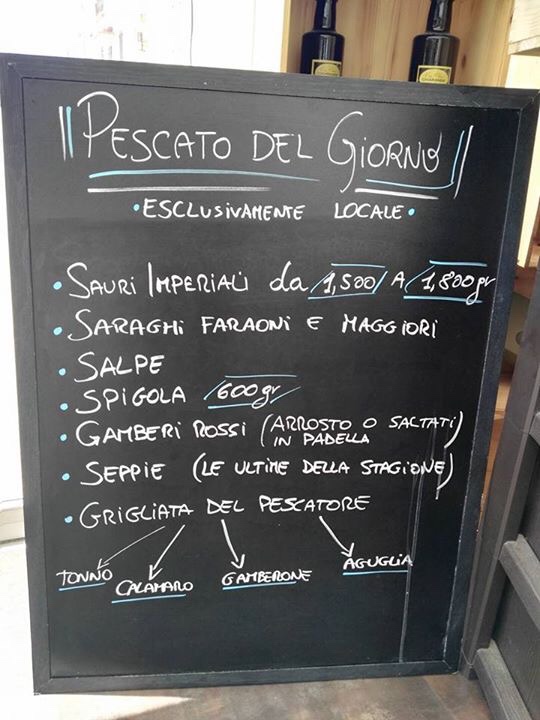 PESCATO DEL GIORNO
• ESCLUSIVAMENTE LOCALE •
• SAURI IMPERIALI da 1,500 A 1,800gr
• SARAGHI FARAONI E MAGGIORI
• SALPE
• SPIGOLA 600gr
• GAMBERI ROSSI (ARROSTO O SALTATI
IN PADELLA)
• SEPPIE (LE ULTIME DELLA STAGIONE)
• GRIGLIATA DEL PESCATORE
TONNO CALAMARO GAMBERONE AGUGLIA